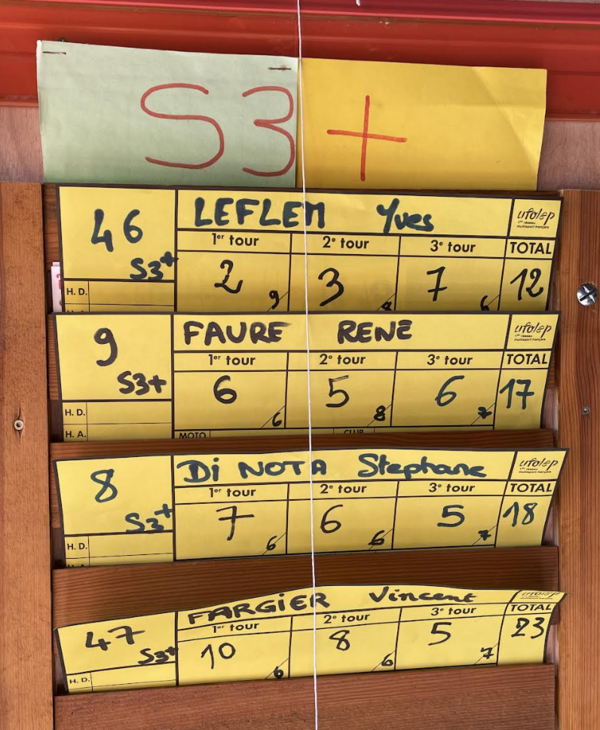 S3 +
46 LEFLEM Yves ufolep
1er tour 2e tour 3e tour TOTAL
S3+ 2 9 3 8 7 6 12
H. D.
9 FAURE RENE ufolep
1er tour 2e tour 3e tour TOTAL
S3+ 6 6 5 8 6 7 17
H. D.
H. A. MOTO CLUB
8 Di NOTA Stephane ufolep
1er tour 2e tour 3e tour TOTAL
S3+ 7 6 6 6 5 7 18
H. D.
47 FARGIER Vincent ufolep
1er tour 2e tour 3e tour TOTAL
S3+ 10 6 8 6 5 7 23
H. D.